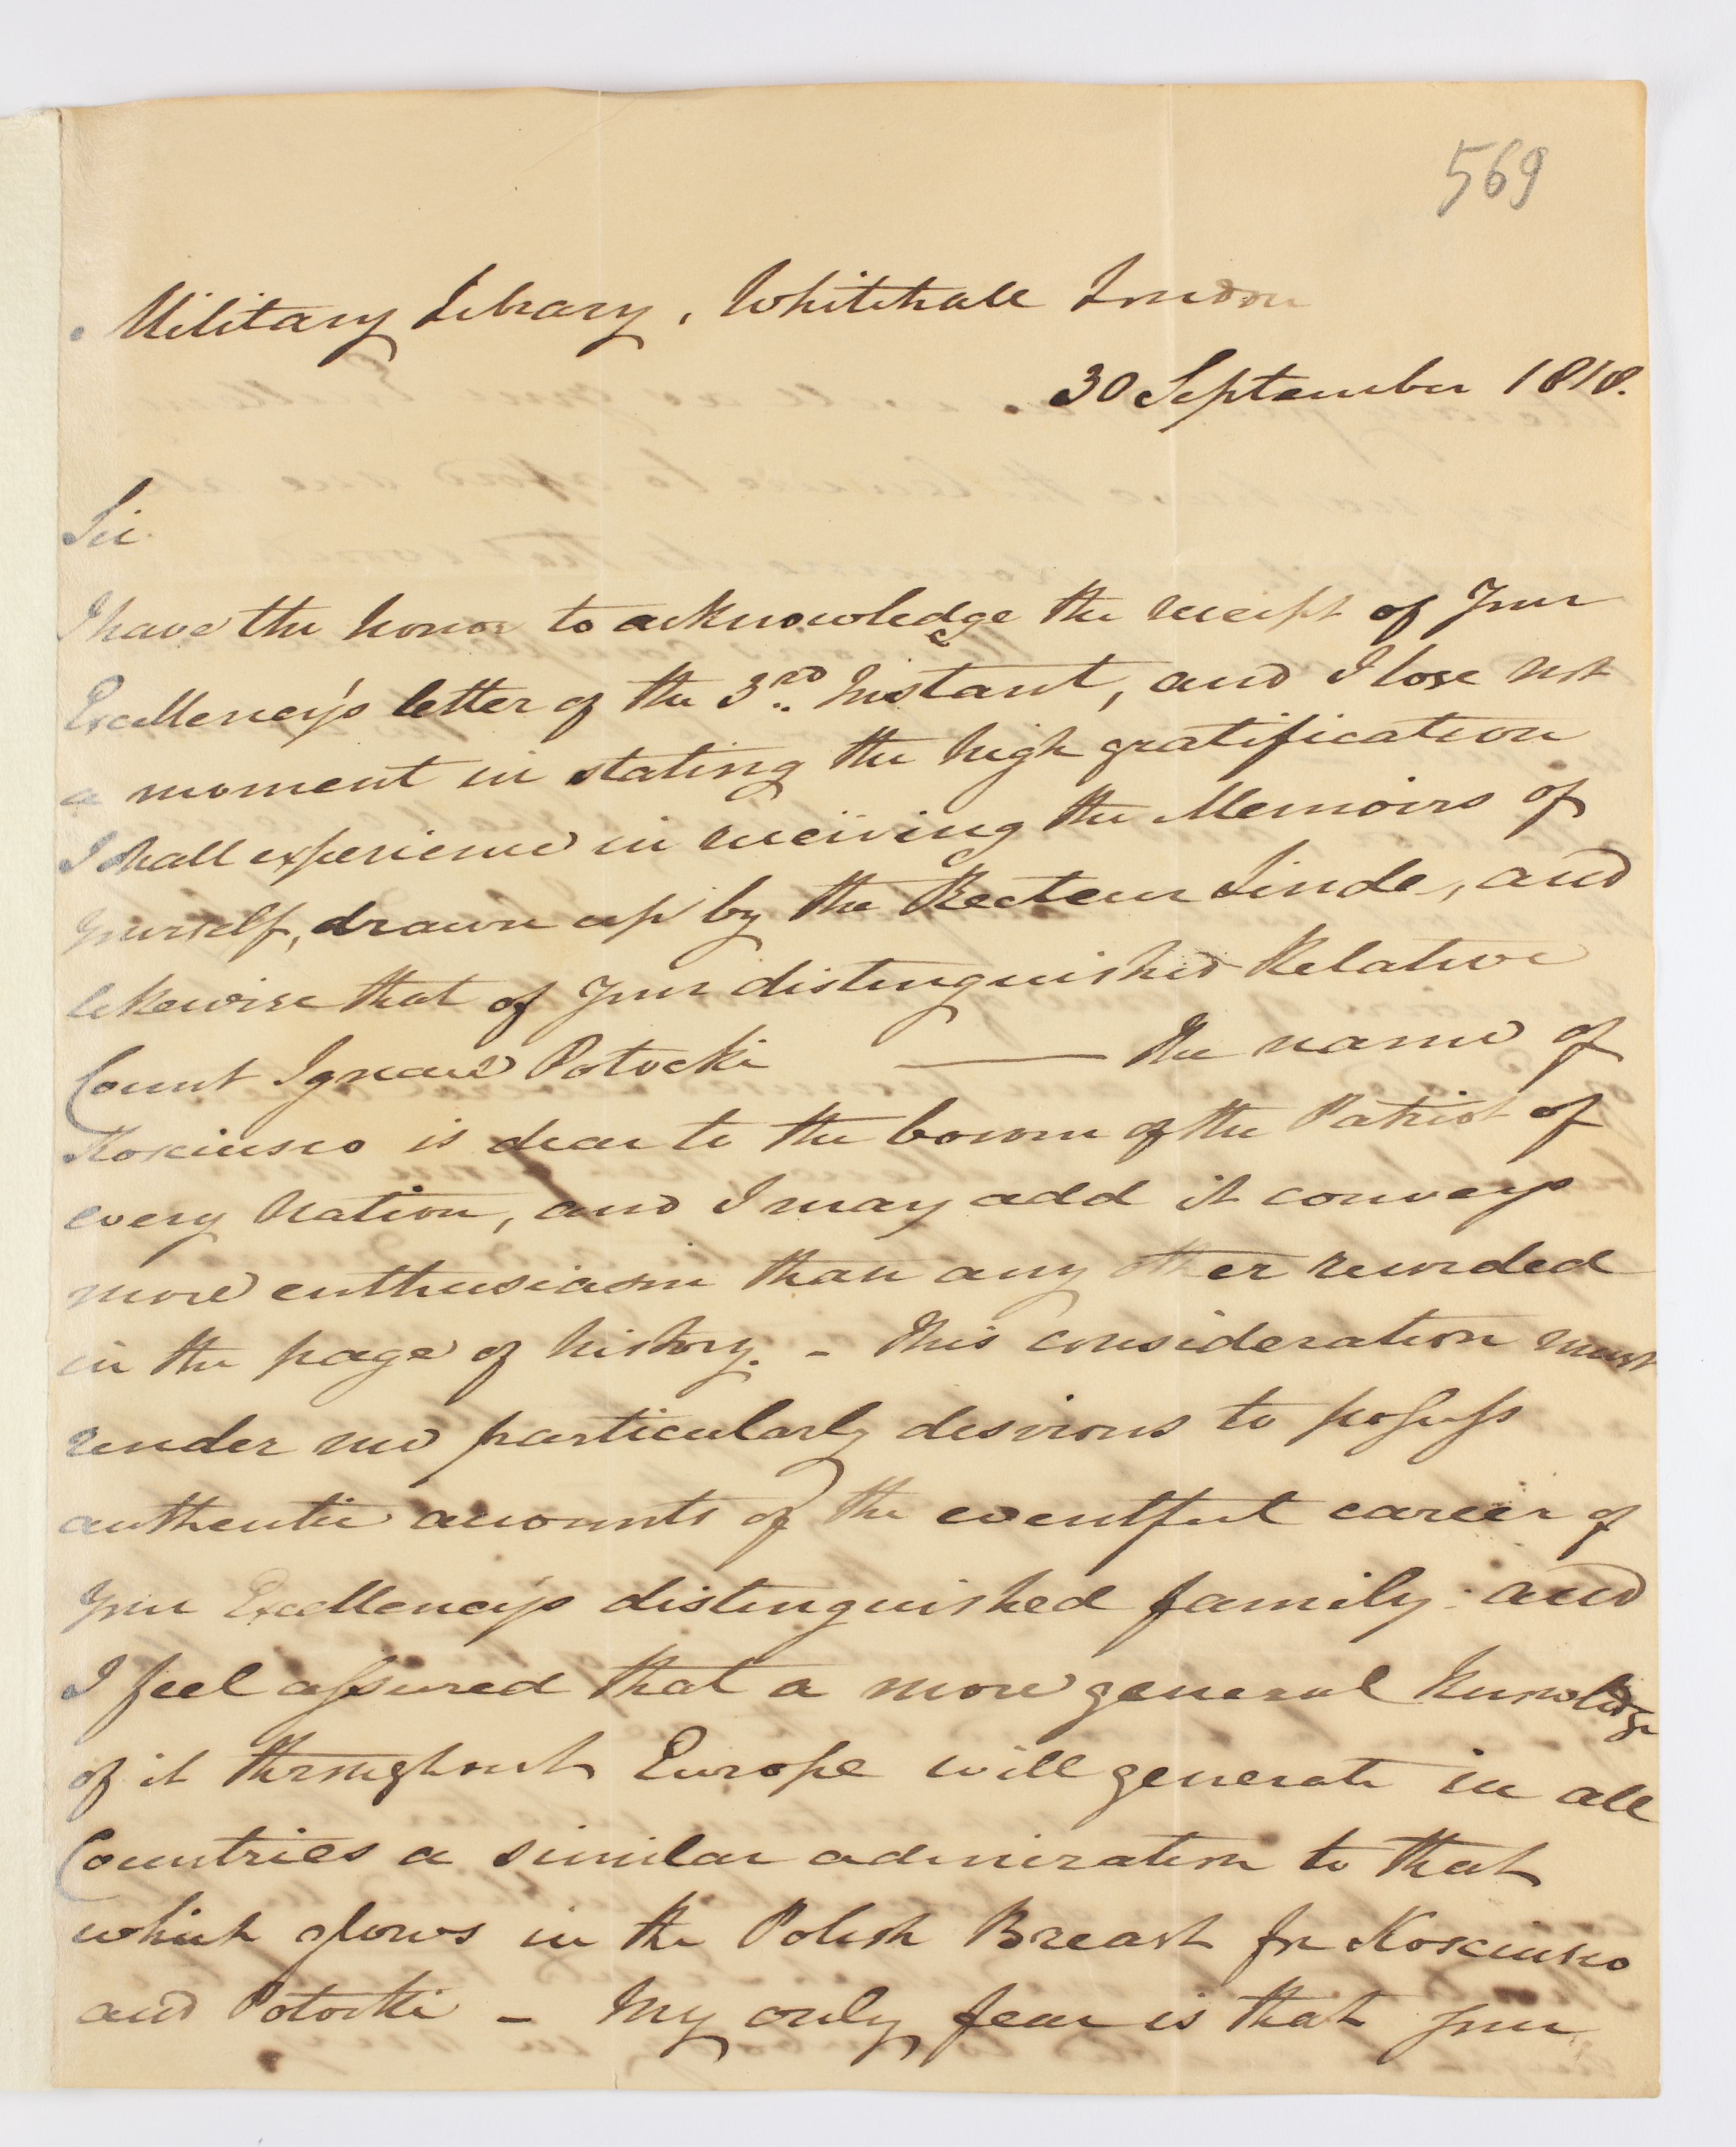 569
Military Library, Whitehall London
30 September 1818.
Sir
I have the honor to acknowledge the receipt of Your
Excellency's letter of the 3rd Instant, and I lose not
a moment in stating the high gratification
I shall experience in receiving the Memoirs of
yourself, drawn up by the Recteur Linde, and
likewise that of Your distinguished Relative
Count Ignace Potocki —— The name of
Kosciusco is dear to the bosom of the Patriot of
every Nation, and I may add it conveys
more enthusiasm than any other recorded
in the page of history. - This consideration must
render me particularly desirous to possess
authentic accounts of the eventful career of
Your Excellency's distinguished family: and
I feel assured that a more general knowledge
of it throughout Europe will generate in all
Countries a similar admiration to that
which glows in the Polish Breast for Kosciusco
and Potocki - My only fear is that Your